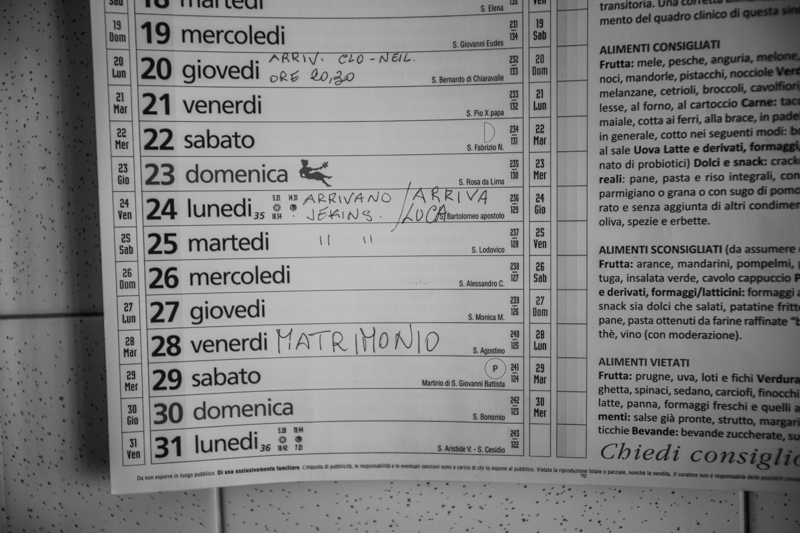 18 martedì
S. Elena
19 Dom
19 mercoledì
S. Giovanni Eudes
231 134
19 Sab
20 Lun
20 giovedì
ARRIV. CLO-NEIL.
ORE 20,30
S. Bernardo di Chiaravalle
232 133
20 Dom
21 Mar
21 venerdì
S. Pio X papa
233 132
21 Lun
22 Mer
22 sabato
D
S. Fabrizio N.
234 131
22 Mar
23 Gio
23 domenica
S. Rosa da Lima
235 130
23 Mer
24 Ven
24 lunedì 35
ARRIVANO / ARRIVA
JEKING. LUCA
S. Bartolomeo apostolo
236 129
24 Gio
25 Sab
25 martedì
" "
S. Lodovico
237 128
25 Ven
26 Dom
26 mercoledì
S. Alessandro C.
238 127
26 Sab
27 Lun
27 giovedì
S. Monica M.
239 126
27 Dom
28 Mar
28 venerdì
MATRIMONIO
S. Agostino
240 125
28 Lun
29 Mer
29 sabato
P
Martirio di S. Giovanni Battista
241 124
29 Mar
30 Gio
30 domenica
S. Bonomio
242 123
30 Mer
31 Ven
31 lunedì 36
S. Aristide V. - S. Cesidio
243 122
Da non esporre in luogo pubblico. Di uso esclusivamente familiare. L'imposta di pubblicità, le responsabilità e le eventuali sanzioni sono a carico di chi lo espone al pubblico. Vietata la riproduzione totale o parziale, nonché la vendita.
transitoria. Una corretta
mento del quadro clinico di questa
ALIMENTI CONSIGLIATI
Frutta: mele, pesche, anguria, melone,
noci, mandorle, pistacchi, nocciole
melanzane, cetrioli, broccoli, cavolfiori
lesse, al forno, al cartoccio Carne:
maiale, cotta ai ferri, alla brace, in
in generale, cotto nei seguenti modi:
al sale Uova Latte e derivati, formaggi
nato di probiotici) Dolci e snack:
reali: pane, pasta e riso integrali,
parmigiano o grana o con sugo di
rato e senza aggiunta di altri
oliva, spezie e erbette.
ALIMENTI SCONSIGLIATI (da assumere
Frutta: arance, mandarini, pompelmi,
tuga, insalata verde, cavolo cappuccio
e derivati, formaggi/latticini: formaggi
snack sia dolci che salati, patatine
pane, pasta ottenuti da farine raffinate
thè, vino (con moderazione).
ALIMENTI VIETATI
Frutta: prugne, uva, loti e fichi
ghetta, spinaci, sedano, carciofi, finocchi
latte, panna, formaggi freschi e quelli
menti: salse già pronte, strutto,
ticchie Bevande: bevande zuccherate,
Chiedi consiglio